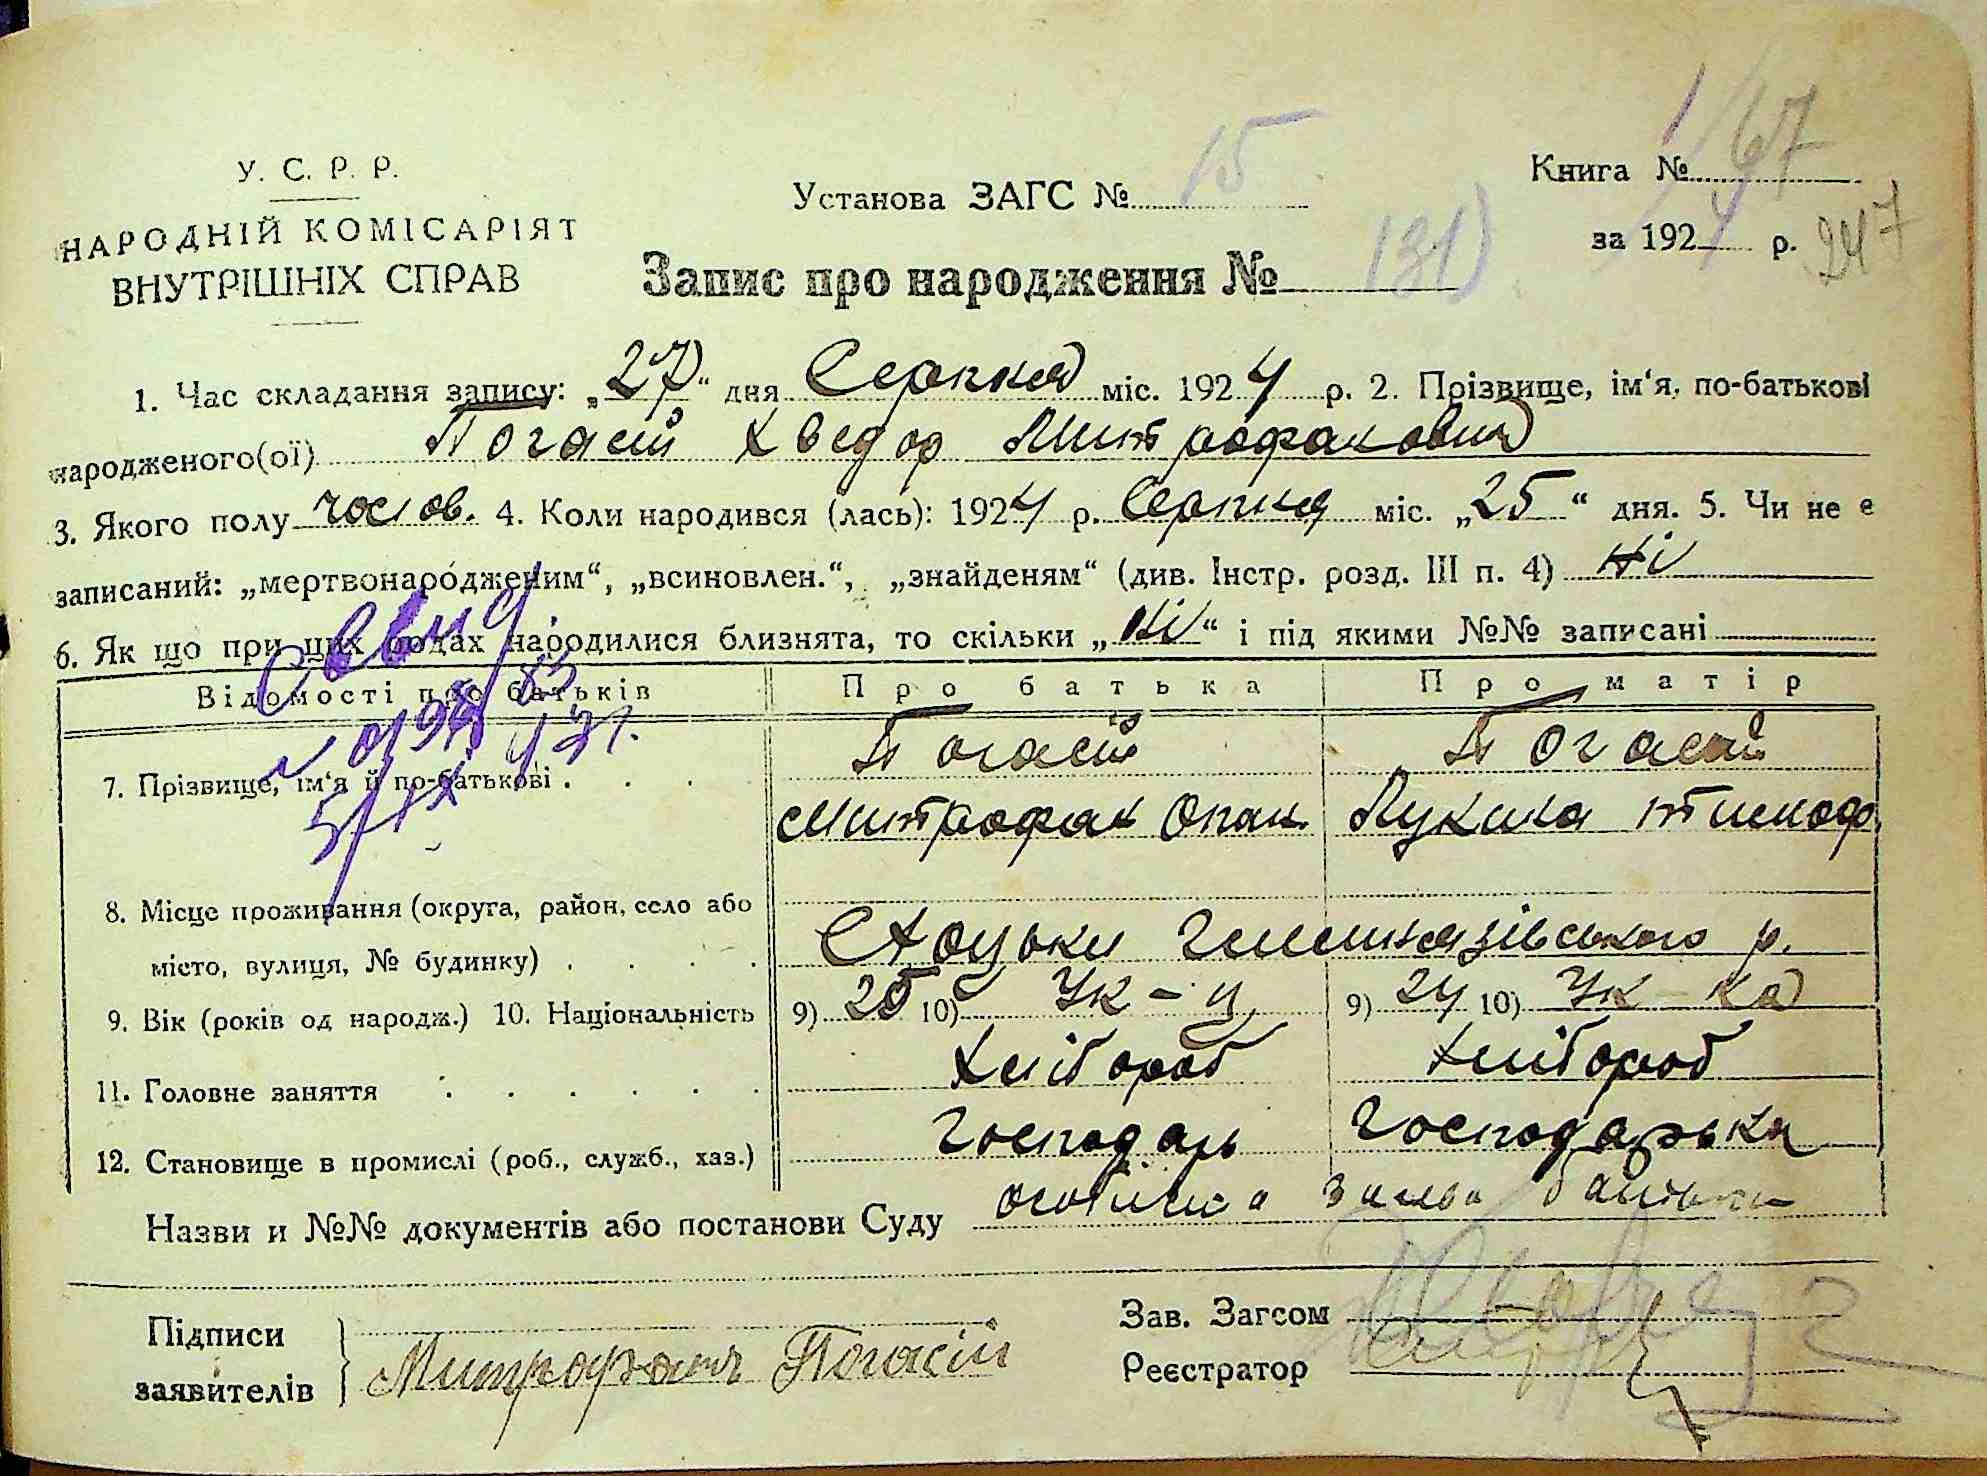 У. С. Р. Р.
НАРОДНІЙ КОМІСАРІЯТ
ВНУТРІШНІХ СПРАВ
Установа ЗАГС № 15
Книга № 1/67
за 1924 р. 247
Запис про народження № 131)
1. Час складання запису: „27“ дня Серпня міс. 1924 р. 2. Прізвище, ім‘я, по-батькові
народженого(ої) Погасій Хведор Митрофанович
3. Якого полу чолов. 4. Коли народився (лась): 1924 р. Серпня міс. „25“ дня. 5. Чи не є
записаний: „мертвонародженим“, „всиновлен.“, „знайденям“ (див. Інстр. розд. III п. 4) Ні
6. Як що при цих родах народилися близнята, то скільки „Ні“ і під якими №№ записані
Відомості про батьків Про батька Про матір
7. Прізвище, ім‘я й по-батькові . . . Погасій Погасій
Митрофан Опан. Лукина Тимоф.
8. Місце проживання (округа, район, село або
місто, вулиця, № будинку) . . . . Стецьки Гельмязівського р.
9. Вік (років од народж.) 10. Національність 9) 25 10) Ук-ц 9) 24 10) Ук-ка
11. Головне заняття . . . . . Хлібороб Хлібороб
12. Становище в промислі (роб., служб., хаз.) Господарь Господарька
Назви и №№ документів або постанови Суду особиста заява батька
Підписи
заявителів Митрофанъ Погасій
Зав. Загсом
Реєстратор